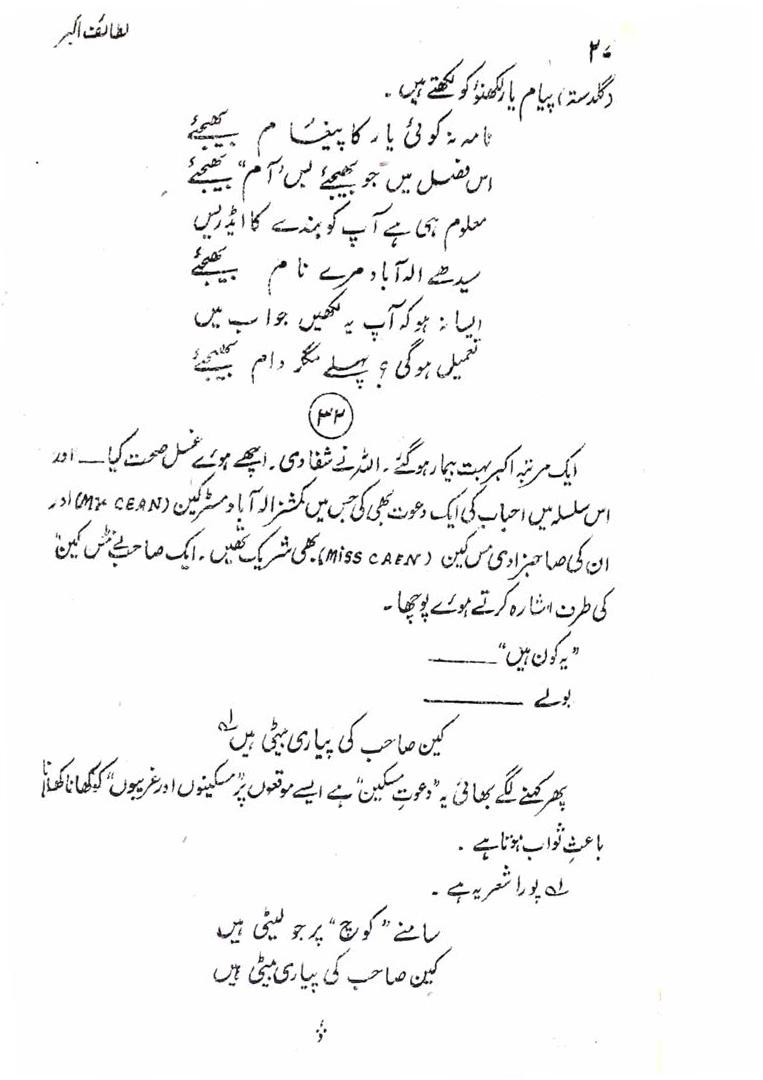 لطائف اکبر
۳۰
(گلدستہ) پیام یار لکھنؤ کو لکھتے ہیں ۔
نامہ نہ کوئی یار کا پیغام بھیجئے
اس فصل میں جو بھیجئے بس "آم" بھیجئے
معلوم ہی ہے آپ کو بندے کا ایڈریس
سیدھے الہ آباد مرے نام بھیجئے
ایسا نہ ہو کہ آپ یہ لکھیں جواب میں
تعمیل ہو گی ؟ پہلے مگر دام بھیجئے
۳۲
ایک مرتبہ اکبر بہت بیمار ہو گئے ۔ اللہ نے شفا دی ۔ اچھے ہوئے غسل صحت کیا ـــ اور
اس سلسلہ میں احباب کی ایک دعوت بھی کی جس میں کمشنر الہ آباد مسٹر کین (Mr CEAN) اور
ان کی صاحبزادی مس کین (Miss CAEN) بھی شریک تھیں ۔ ایک صاحب نے "مس کین"
کی طرف اشارہ کرتے ہوئے پوچھا ۔
"یہ کون ہیں" ـــــــ
بولے ـــــــــ
کین صاحب کی پیاری بیٹی ہیں لہ
پھر کہنے لگے بھائی یہ "دعوتِ مسکین" ہے ایسے موقعوں پر "مسکینوں اور غریبوں" کو کھانا کھلانا
باعثِ ثواب ہوتا ہے ۔
لہ پورا شعر یہ ہے ۔
سامنے "کوچ" پر جو لیٹی ہیں
کین صاحب کی پیاری بیٹی ہیں